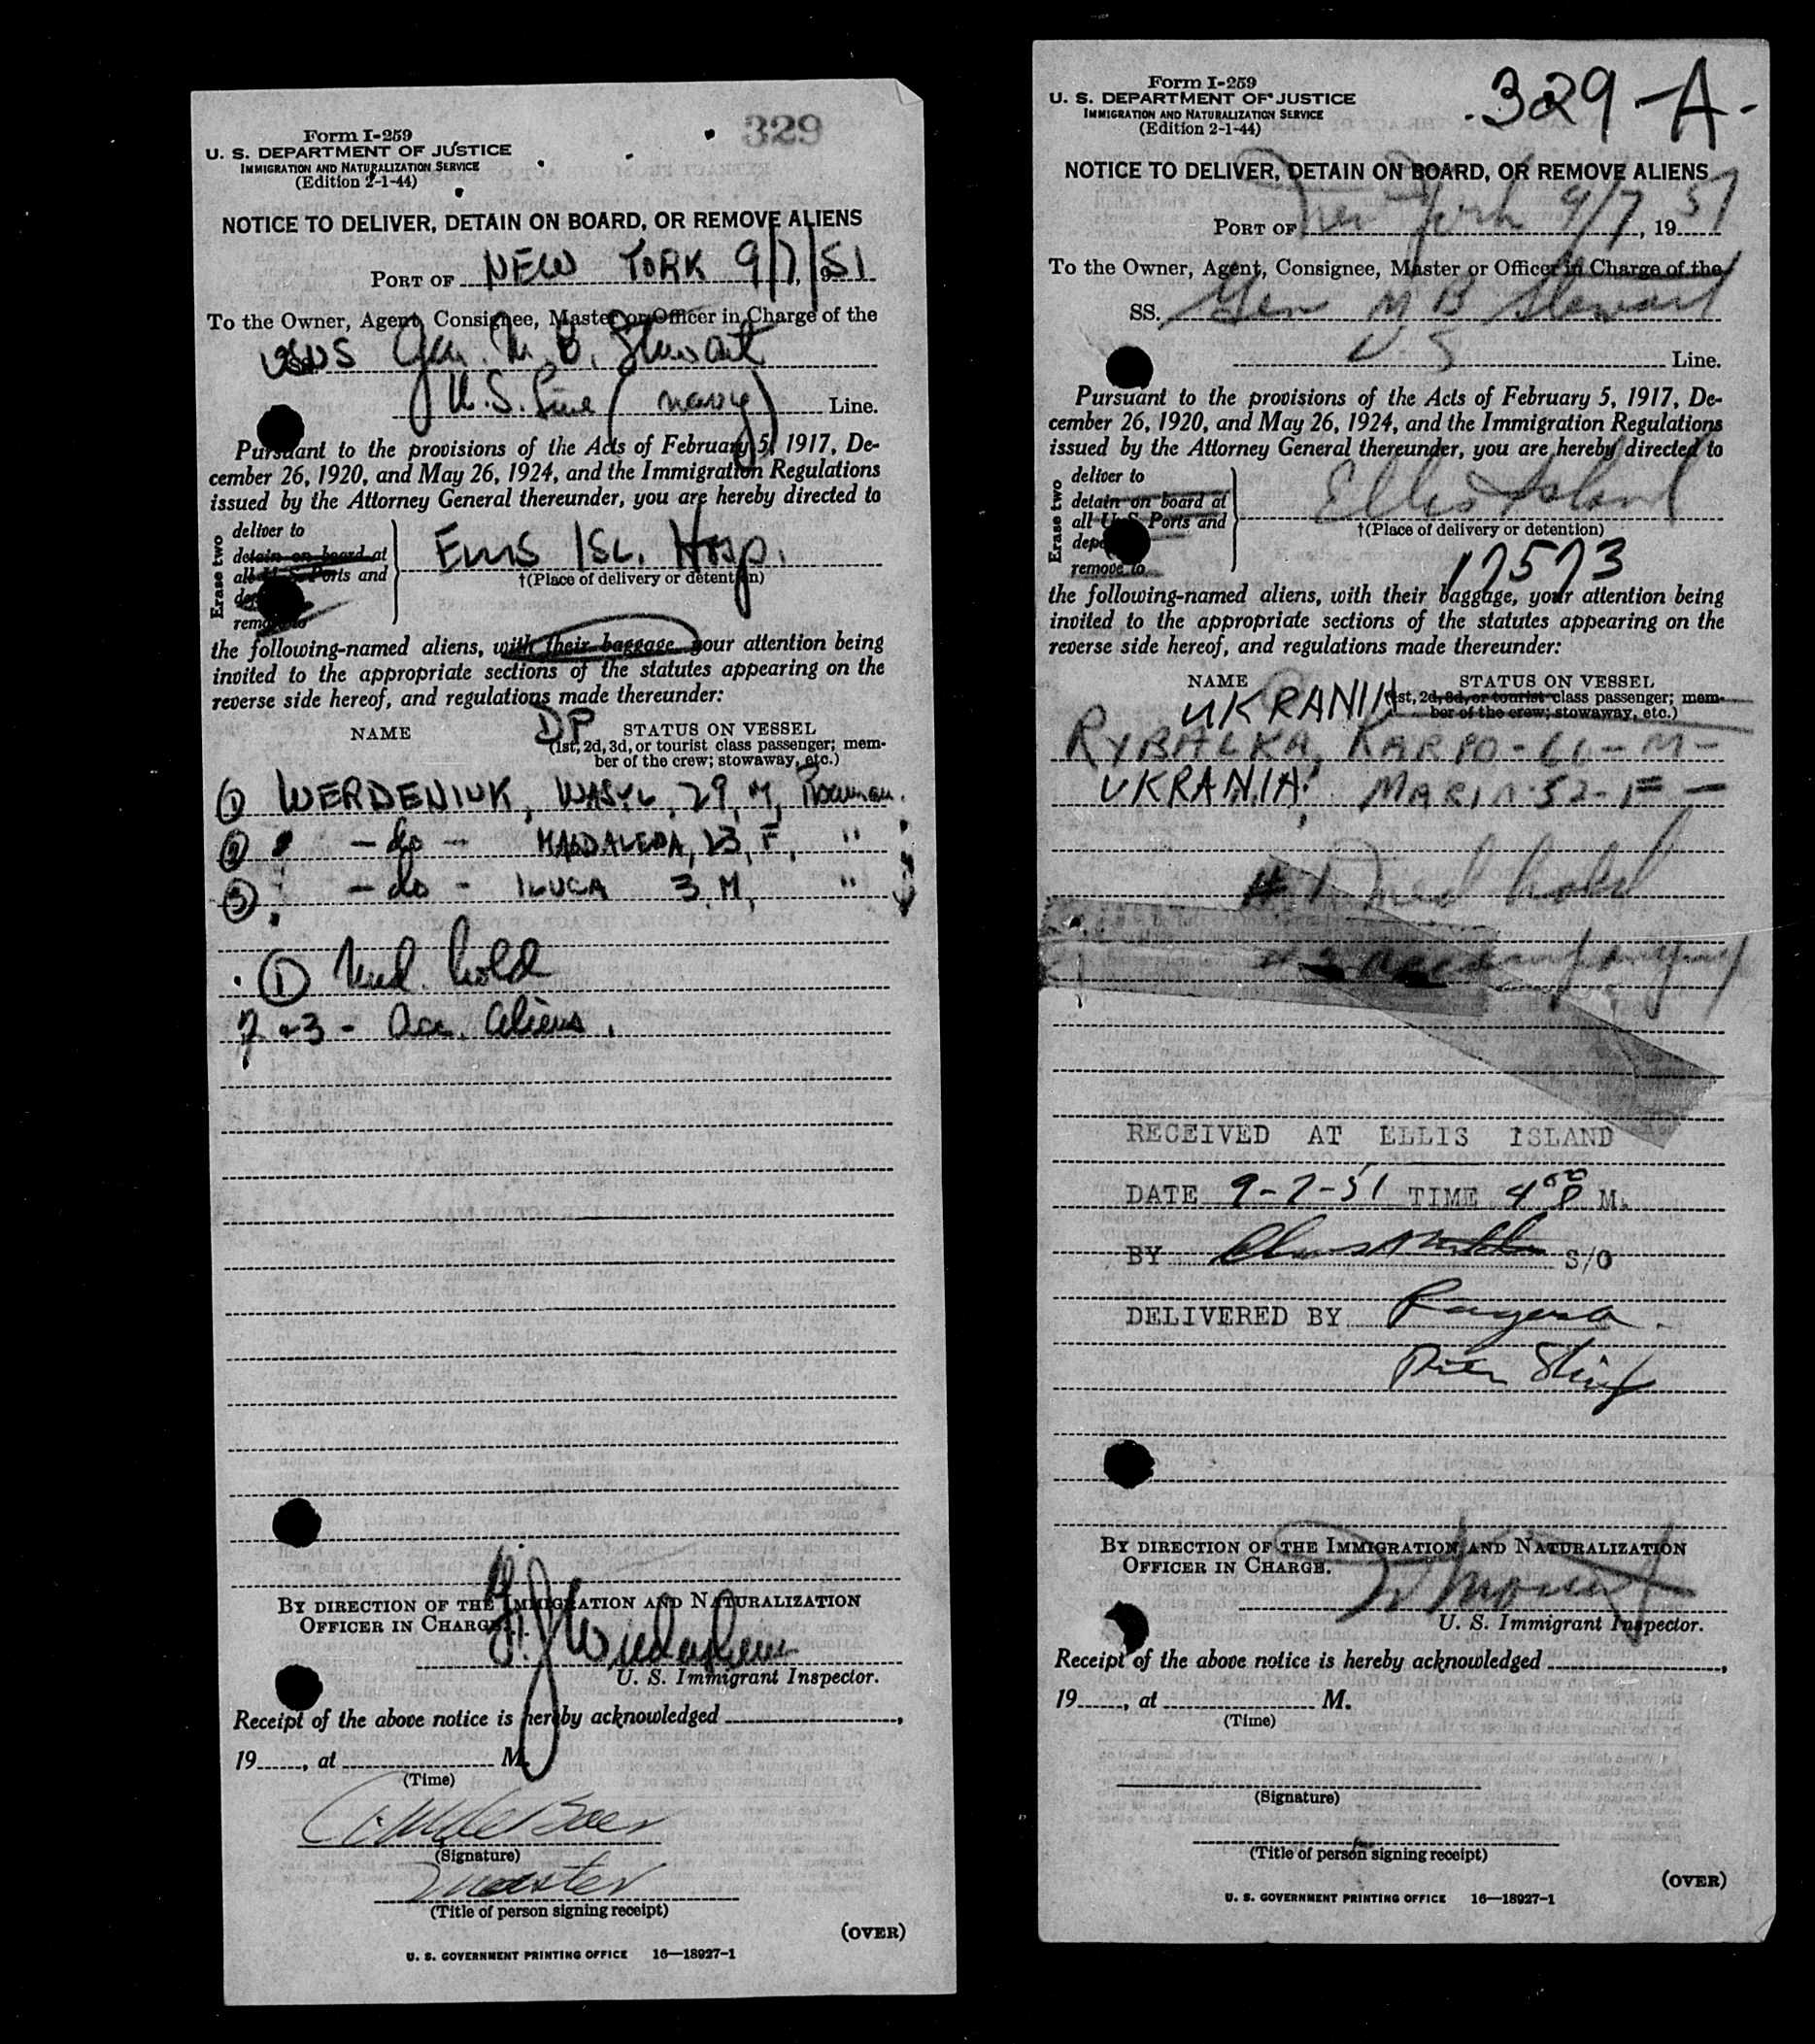 329
Form I-259
U. S. DEPARTMENT OF JUSTICE
IMMIGRATION AND NATURALIZATION SERVICE
(Edition 2-1-44)
NOTICE TO DELIVER, DETAIN ON BOARD, OR REMOVE ALIENS
PORT OF NEW YORK 9/7/51
To the Owner, Agent, Consignee, Master or Officer in Charge of the
Gen. M. B. Stewart
U.S. Line (navy) Line.
Pursuant to the provisions of the Acts of February 5, 1917, De-
cember 26, 1920, and May 26, 1924, and the Immigration Regulations
issued by the Attorney General thereunder, you are hereby directed to
Erase two
deliver to
detain on board at
all U. S. Ports and
remove to
Ellis Isl. Hosp.
†(Place of delivery or detention)
the following-named aliens, with their baggage, your attention being
invited to the appropriate sections of the statutes appearing on the
reverse side hereof, and regulations made thereunder:
NAME DP STATUS ON VESSEL
(1st, 2d, 3d, or tourist class passenger; mem-
ber of the crew; stowaway, etc.)
① WERDENIUK, WASYL, 29, M,
② - do - MAGDALENA, 23, F, "
③ - do - ILUCA 3, M, "
① Med. hold
2 & 3 - Acc. aliens.
BY DIRECTION OF THE IMMIGRATION AND NATURALIZATION
OFFICER IN CHARGE.
U. S. Immigrant Inspector.
Receipt of the above notice is hereby acknowledged
19 , at M.
(Time)
(Signature)
Master
(Title of person signing receipt)
(OVER)
U. S. GOVERNMENT PRINTING OFFICE 16—18927-1
329-A-
Form I-259
U. S. DEPARTMENT OF JUSTICE
IMMIGRATION AND NATURALIZATION SERVICE
(Edition 2-1-44)
NOTICE TO DELIVER, DETAIN ON BOARD, OR REMOVE ALIENS
PORT OF New York 9/7, 19 51
To the Owner, Agent, Consignee, Master or Officer in Charge of the
SS. Gen M B Stewart
U S Line.
Pursuant to the provisions of the Acts of February 5, 1917, De-
cember 26, 1920, and May 26, 1924, and the Immigration Regulations
issued by the Attorney General thereunder, you are hereby directed to
Erase two
deliver to
detain on board at
all U. S. Ports and
remove to
Ellis Island
†(Place of delivery or detention)
17573
the following-named aliens, with their baggage, your attention being
invited to the appropriate sections of the statutes appearing on the
reverse side hereof, and regulations made thereunder:
NAME STATUS ON VESSEL
(1st, 2d, 3d, or tourist class passenger; mem-
ber of the crew; stowaway, etc.)
UKRANIA
RYBALKA, KARPO - 61 - M -
UKRANIA MARIA - 52 - F -
# 1 med hold
# 2 accompanying
RECEIVED AT ELLIS ISLAND
DATE 9-7-51 TIME 4 00 P M.
BY S/O
DELIVERED BY
BY DIRECTION OF THE IMMIGRATION AND NATURALIZATION
OFFICER IN CHARGE.
U. S. Immigrant Inspector.
Receipt of the above notice is hereby acknowledged ,
19 , at M.
(Time)
(Signature)
(Title of person signing receipt)
(OVER)
U. S. GOVERNMENT PRINTING OFFICE 16—18927-1